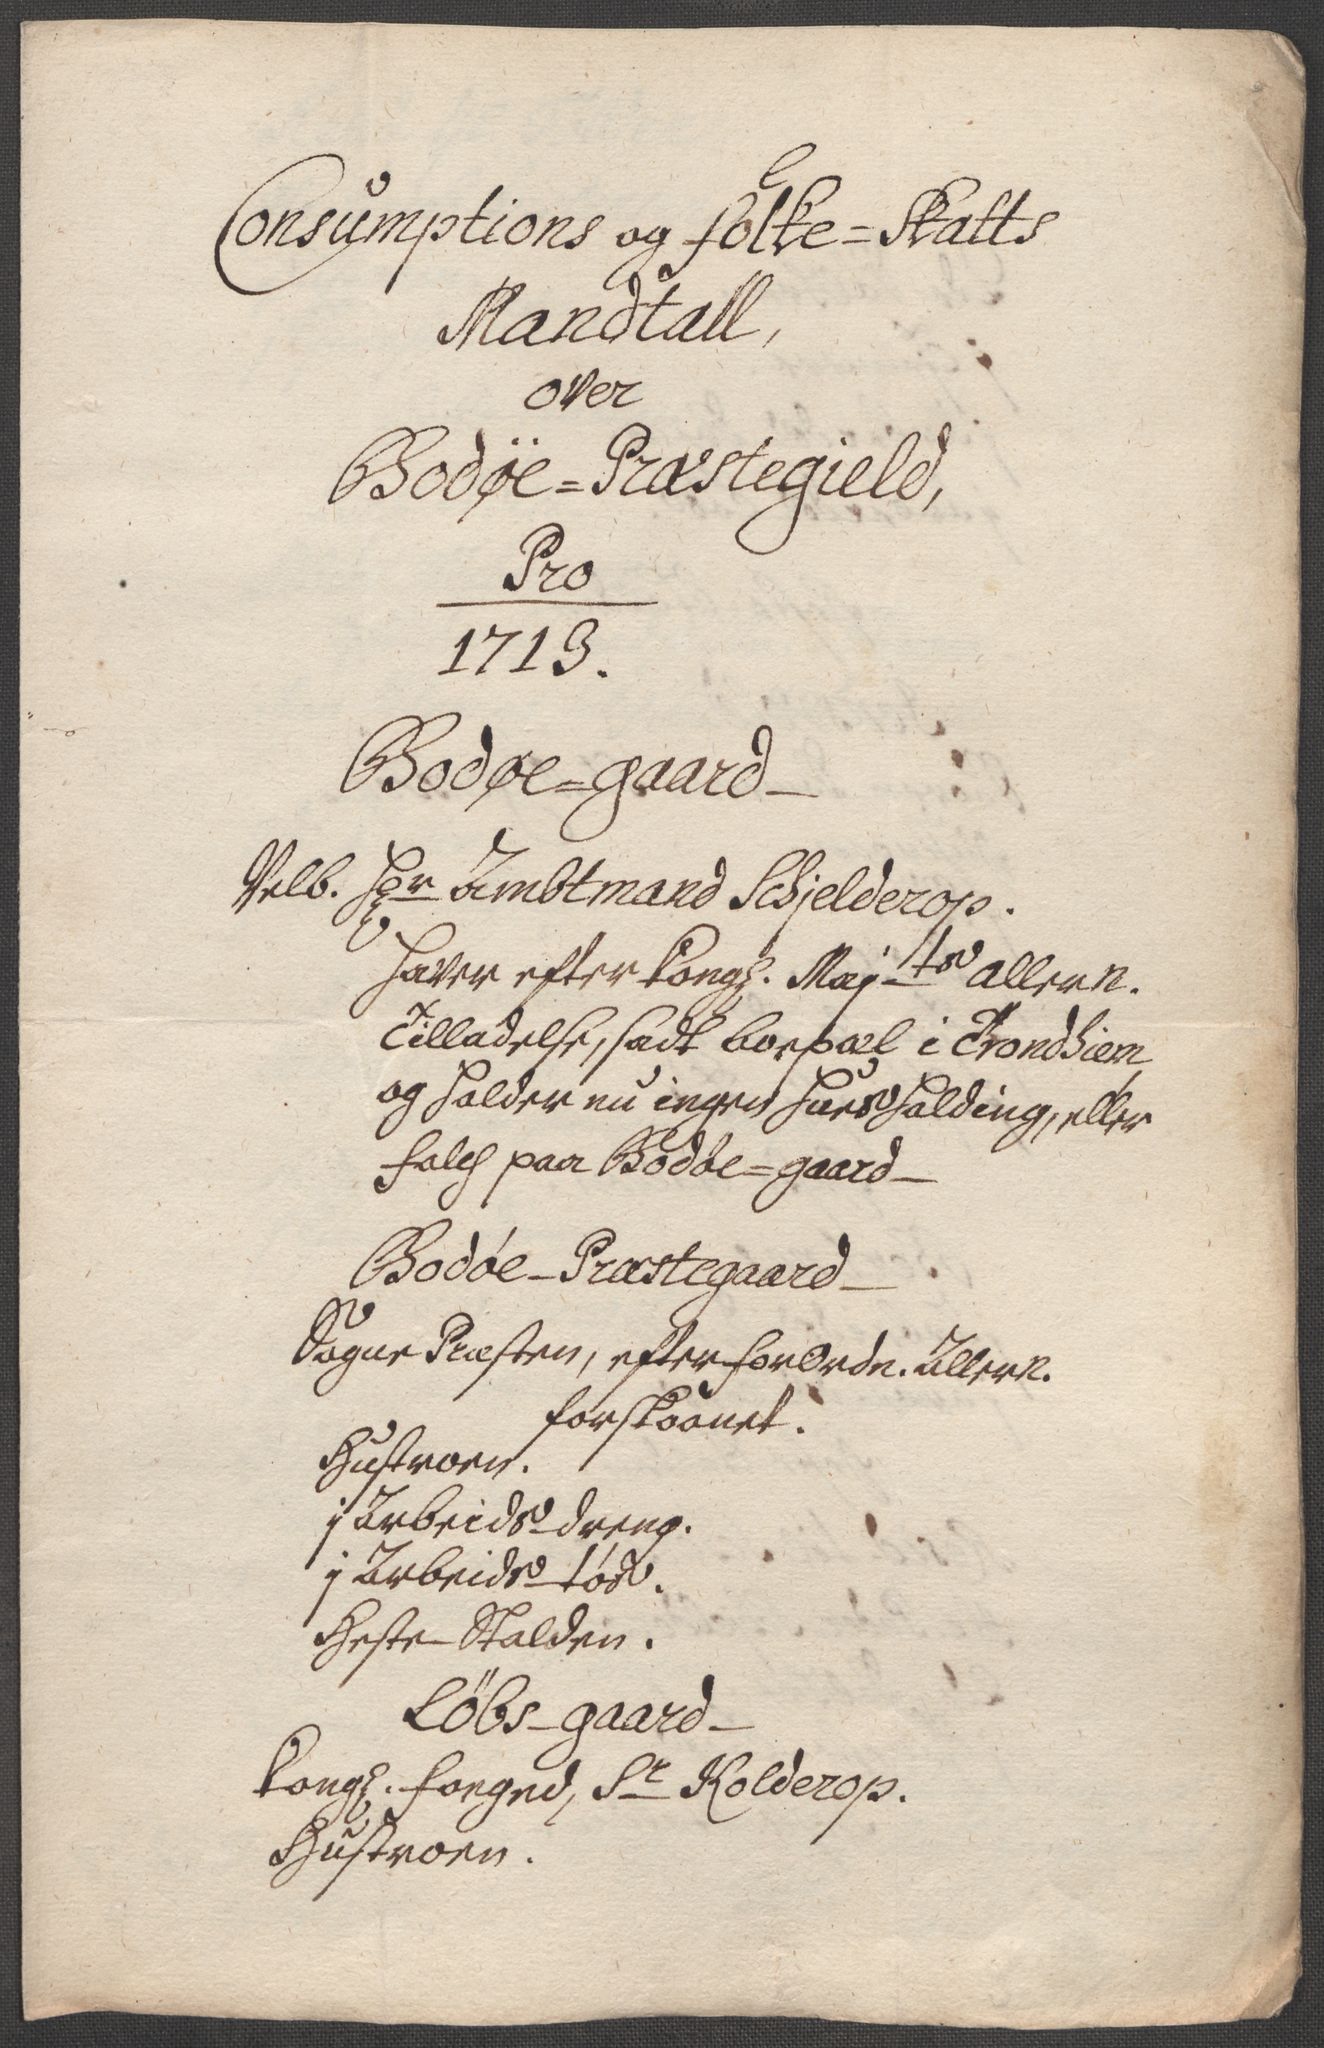 Consumptions og folke=Skatts
Mandtall,
over
Bodøe=Præstegield,
Pro
1713.
Bodøe=gaard
Velb. Hr Ambtmand Schjelderop.
Haver efter Kongl. Maj-ts allern.
Tilladelse, sadt boepæl i Trondhiem
og holder nu ingen huusholding, eller
folch paa Bodøe=gaard
Bodøe-Præstegaard
Sogne Præsten, efter forOrdn. Allern.
forskoonet.
Hustroen.
j Arbeids dreng.
j Arbeids tøs.
Heste-Stalden.
Løbs-gaard
Kongl. Foeged, Sr Kolderop.
Hustroen.